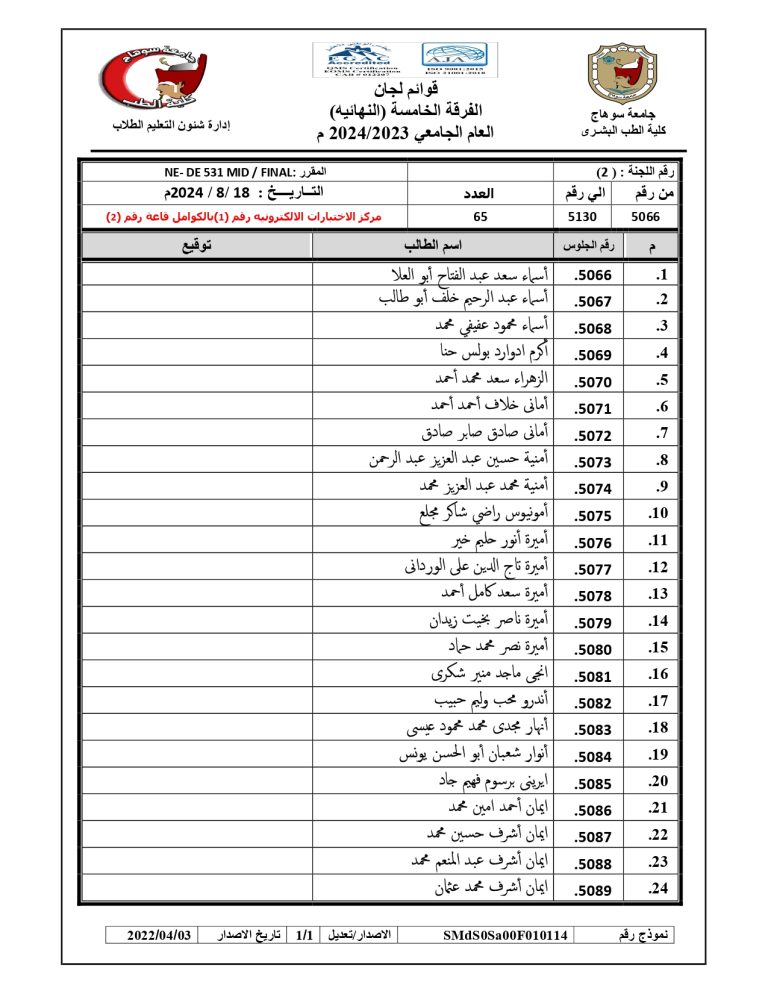 جامعة سوهاج
كلية الطب البشرى
EGAC
Accredited
QMS Certification
EOMS Certification
CAB # 012207
AJA
ISO 9001:2015
ISO 21001:2018
قوائم لجان
الفرقة الخامسة (النهائيه)
العام الجامعي 2024/2023 م
جامعة سوهاج
كلية الطب
إدارة شئون التعليم الطلاب
رقم اللجنة : ( 2) المقرر :NE- DE 531 MID / FINAL
من رقم الي رقم العدد التــاريــــخ : 18 /8 / 2024م
5066 5130 65 مركز الاختبارات الالكترونيه رقم (1)بالكوامل قاعة رقم (2)
م رقم الجلوس اسم الطالب توقيع
1. 5066. أسماء سعد عبد الفتاح أبو العلا
2. 5067. أسماء عبد الرحيم خلف أبو طالب
3. 5068. أسماء محمود عفيفي محمد
4. 5069. أكرم ادوارد بولس حنا
5. 5070. الزهراء سعد محمد أحمد
6. 5071. أمانى خلاف أحمد أحمد
7. 5072. أمانى صادق صابر صادق
8. 5073. أمنية حسين عبد العزيز عبد الرحمن
9. 5074. أمنية محمد عبد العزيز محمد
10. 5075. أمونيوس راضي شاكر مجلع
11. 5076. أميرة أنور حليم خير
12. 5077. أميرة تاج الدين على الوردانى
13. 5078. أميرة سعد كامل أحمد
14. 5079. أميرة ناصر بخيت زيدان
15. 5080. أميرة نصر محمد حماد
16. 5081. انجى ماجد منير شكرى
17. 5082. أندرو محب وليم حبيب
18. 5083. أنهار مجدى محمد محمود عيسى
19. 5084. أنوار شعبان أبو الحسن يونس
20. 5085. ايرينى برسوم فهيم جاد
21. 5086. ايمان أحمد امين محمد
22. 5087. ايمان أشرف حسين محمد
23. 5088. ايمان أشرف عبد المنعم محمد
24. 5089. ايمان أشرف محمد عثمان
نموذج رقم SMdS0Sa00F010114 الاصدار/تعديل 1/1 تاريخ الاصدار 2022/04/03